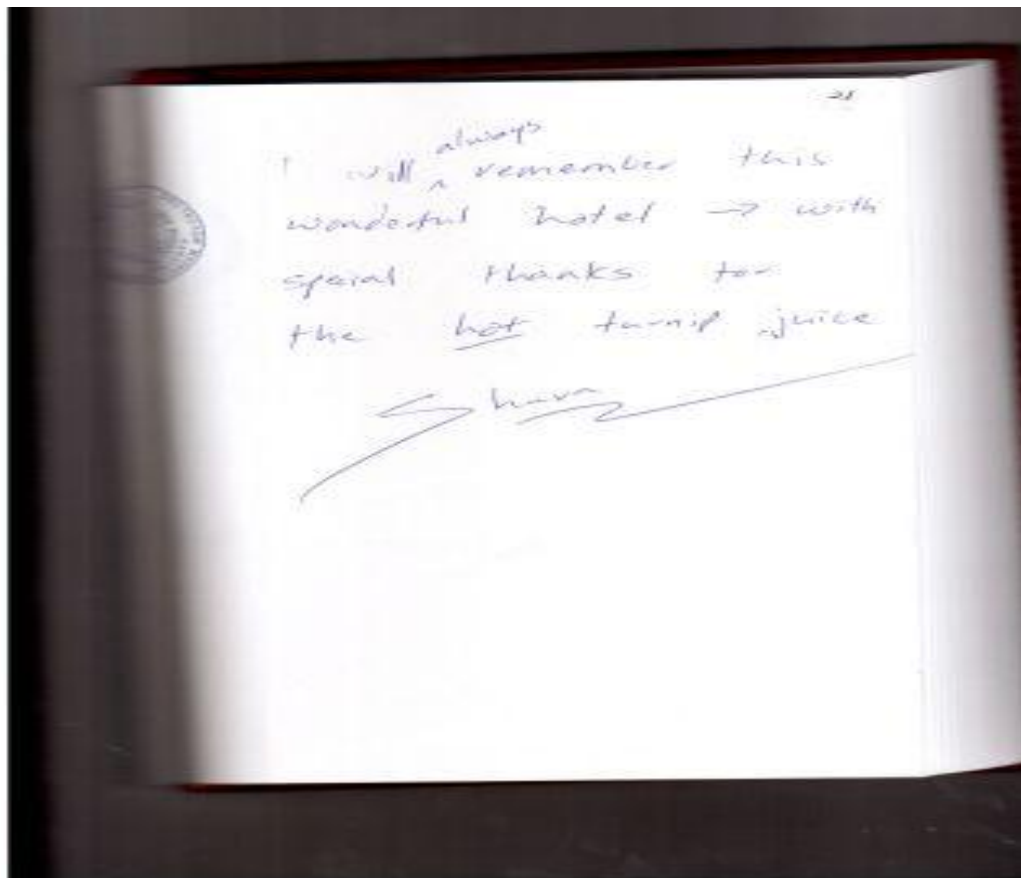 28
I will always remember this
wonderful hotel → with
special thanks for
the hot turnip juice